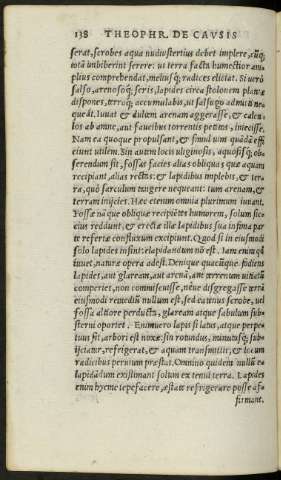 138 THEOPHR. DE CAVSIS
serat, scrobes aqua nudiustertius debet implere, cūq;
totā imbiberint serere: ut terra facta humectior am-
plius comprehendat, meliusq; radices eliciat. Si uerò
salso, arenosoq; seris, lapides circa stolonem plantæ
dispones, terroq; accumulabis, ut salsugo admitti ne-
queat. Iuuat & dulcem arenam aggerasse, & calcu-
los ab amne, aut faucibus torrentis petitos, iniecisse.
Nam ea quoque propulsant, & simul uim quādā effi
ciunt utilem. Sin autem locis uliginosis, aquosisq; ob-
serendum sit, fossas facies alias obliquas quæ aquam
recipiant, alias rectas: & lapidibus implebis, & ter-
ra, quò sarculum tangere nequeant: tum arenam, &
terram inijcies. Hæc etenim omnia plurimum iuuant.
Fossæ nāque obliquæ recipiētes humorem, solum sic-
cius reddunt, & rectæ illæ lapidibus sua infima par
te refertæ confluxum excipiunt. Quod si in eiusmodi
solo lapides insint: elapidandum nō est. Iam enim qđ
iuuet, naturæ opera adest. Denique quacūque sodiens
lapides, aut glaream, aut arenā, aut terrenum uitiatū
comperiet, non commiscuisse, néue disgregasse terrā
eiusmodi remedium nullum est, sed eatenus scrobe, uel
fossa altiore perducta, glaream atque sabulum sub-
sterni oportet. Enimuero lapis si latus, atque perpe-
tuus sit, arbori est noxæ: sin rotundus, minutusq; sub-
ijciatur, refrigerat, & aquam transmittit, & locum
radicibus peruium præstat. Omnino quidem nullū e-
lapidādum existimant solum ex tenui terra. Lapides
enim hyeme tepefacere, æstate refrigerare posse af-
firmant.